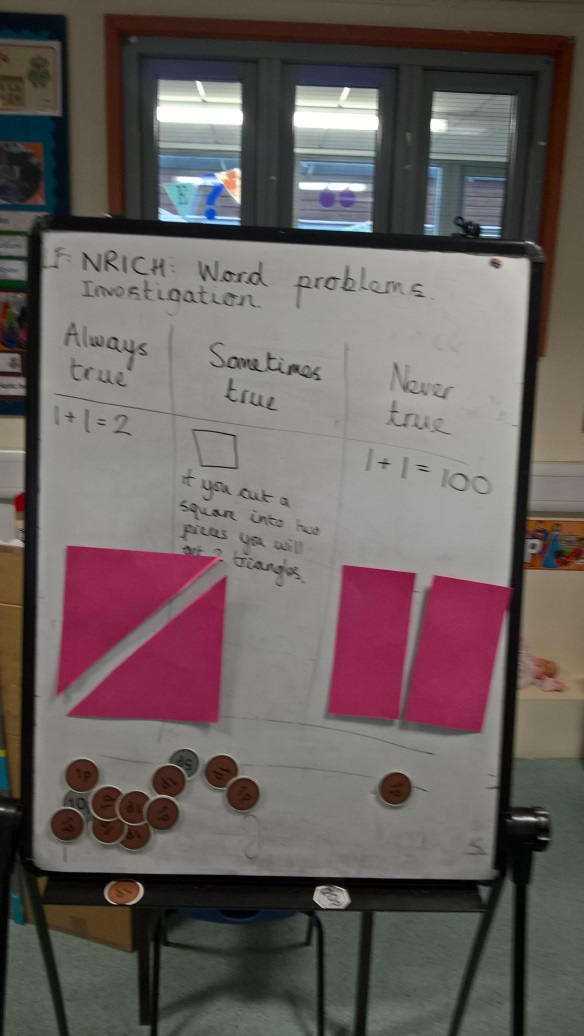 LF: NRICH: Word problems.
Investigation.
Always
true
Sometimes
true
Never
true
1+1=2
1+1=100
if you cut a
square into two
pieces you will
get 2 triangles.
1p
5p
1p
1p
10
1p
1p
1p
1p
1p
1p
1p
1p
1p